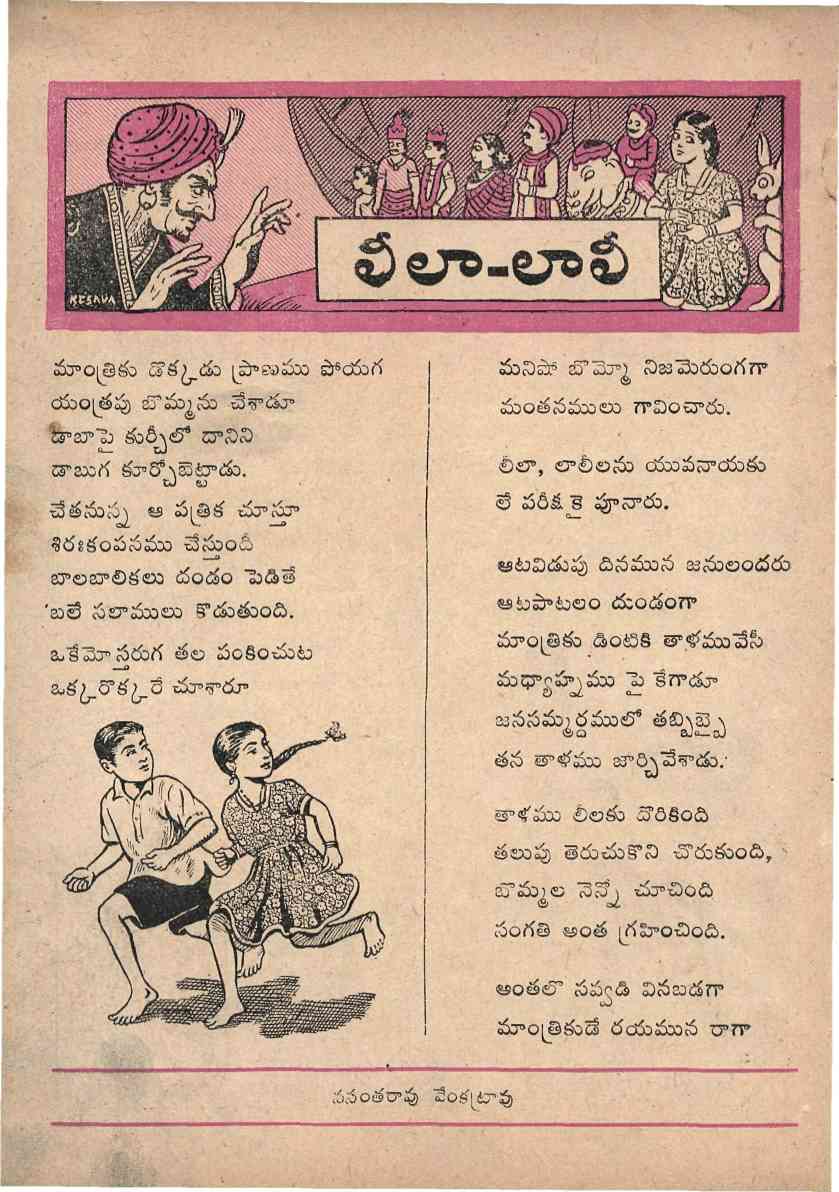 లీలా-లాలీ
KESAVA
మాంత్రికు డొక్కడు ప్రాణము పోయగ
యంత్రపు బొమ్మను చేశాడూ
డాబాపై కుర్చీలో దానిని
డాబుగ కూర్చోబెట్టాడు.
చేతనున్న ఆ పత్రిక చూస్తూ
శిరఃకంపనము చేస్తుందీ
బాలబాలికలు దండం పెడితే
'బలే సలాములు కొడుతుంది.
ఒకేమోస్తరుగ తల పంకించుట
ఒక్కరొక్కరే చూశారూ
మనిషో బొమ్మో నిజమెరుంగగా
మంతనములు గావించారు.
లీలా, లాలీలను యువనాయకు
లే పరీక్షకై పూనారు.
ఆటవిడుపు దినమున జనులందరు
ఆటపాటలం దుండంగా
మాంత్రికు డింటికి తాళమువేసీ
మధ్యాహ్నము పై కేగాడూ
జనసమ్మర్దములో తబ్బిబ్బై
తన తాళము జార్చివేశాడు.
తాళము లీలకు దొరికింది
తలుపు తెరుచుకొని చొరుకుంది,
బొమ్మల నెన్నో చూచింది
సంగతి అంత గ్రహించింది.
అంతలొ సవ్వడి వినబడగా
మాంత్రికుడే రయమున రాగా
వసంతరావు వేంకట్రావు